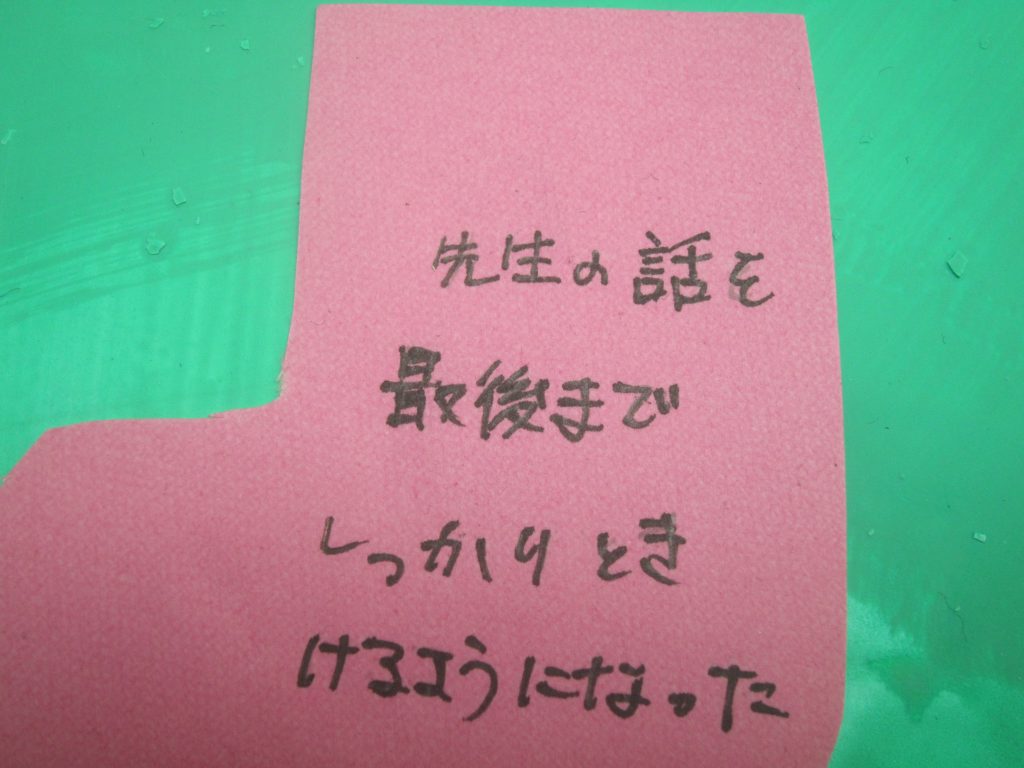 先生の話を
最後まで
しっかりとき
けるようになった